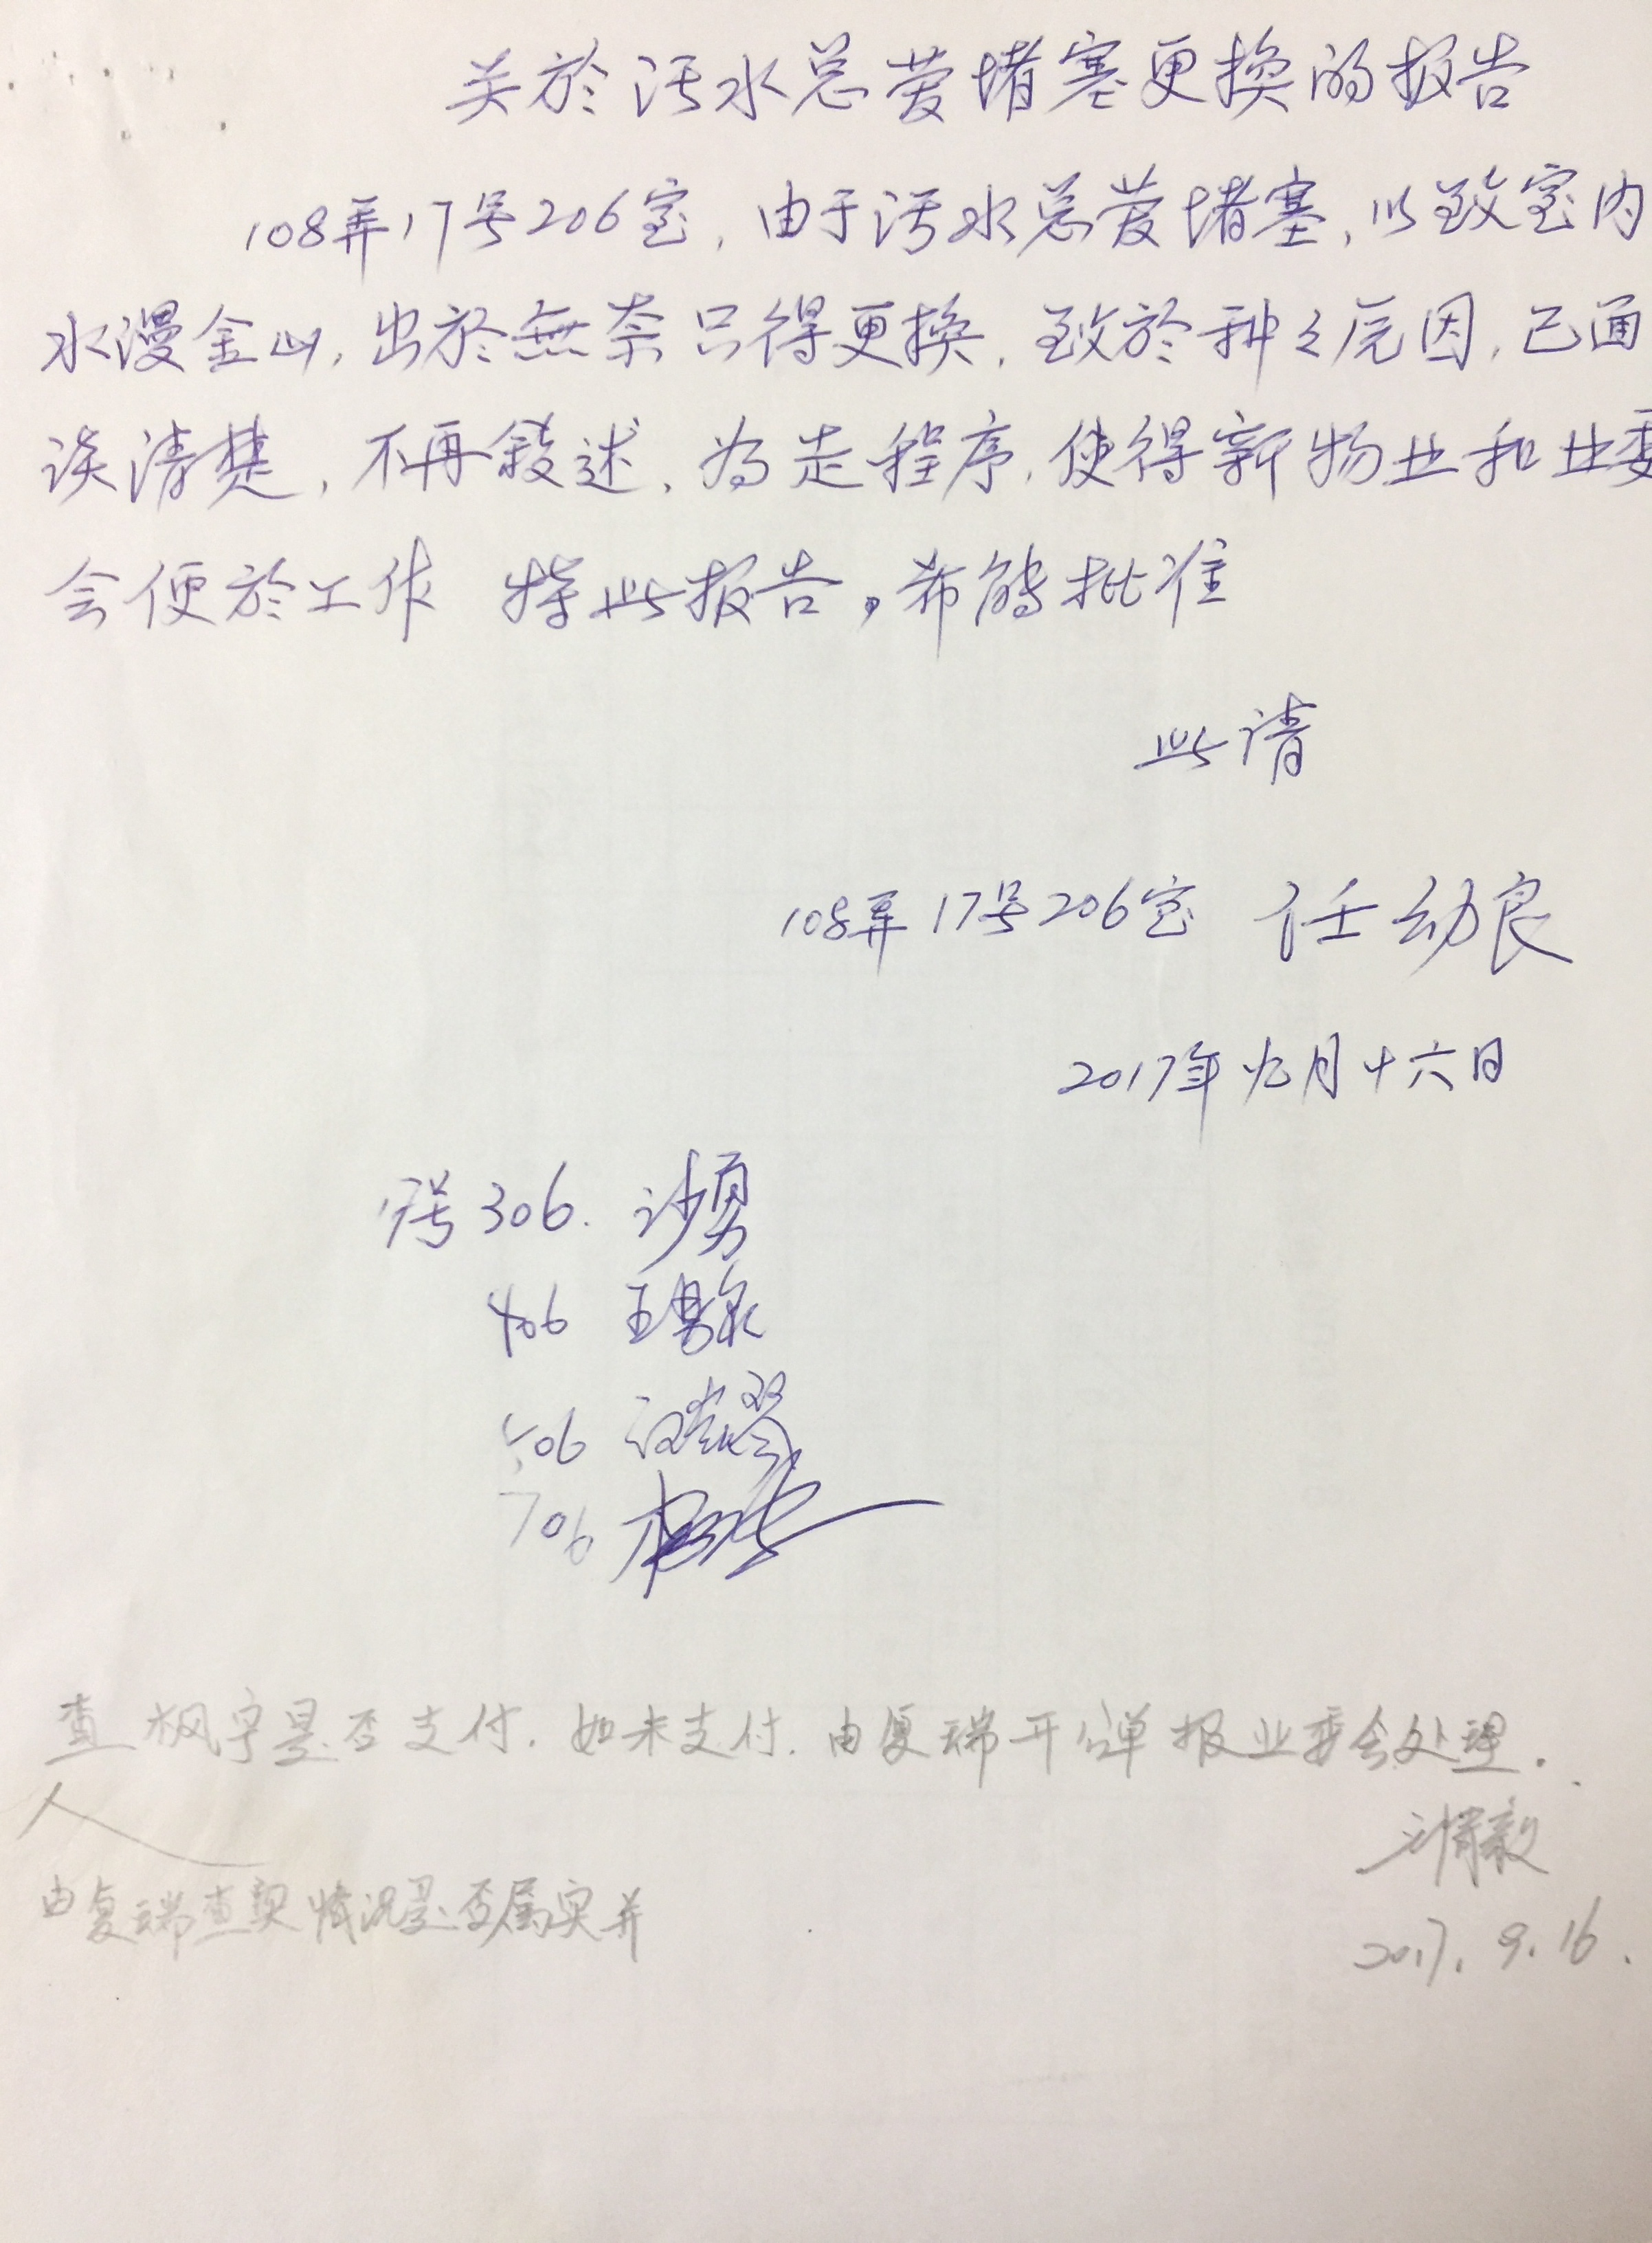 关於污水总管堵塞更换的报告
108弄17号206室，由于污水总管堵塞，以致室内
水漫金山，出於無奈只得更换，致於种々原因，已面
谈清楚，不再叙述，为走程序，使得新物业和业委
会便於工作 特此报告，希能批准
此请
108弄17号206室 任幼良
2017年九月十六日
17号306. 沙勇
406 王
506
706 杨
查枫宇是否支付，如未支付，由复瑞开具单报业委会处理。
人
由复瑞查实情况是否属实并
2017.9.16.